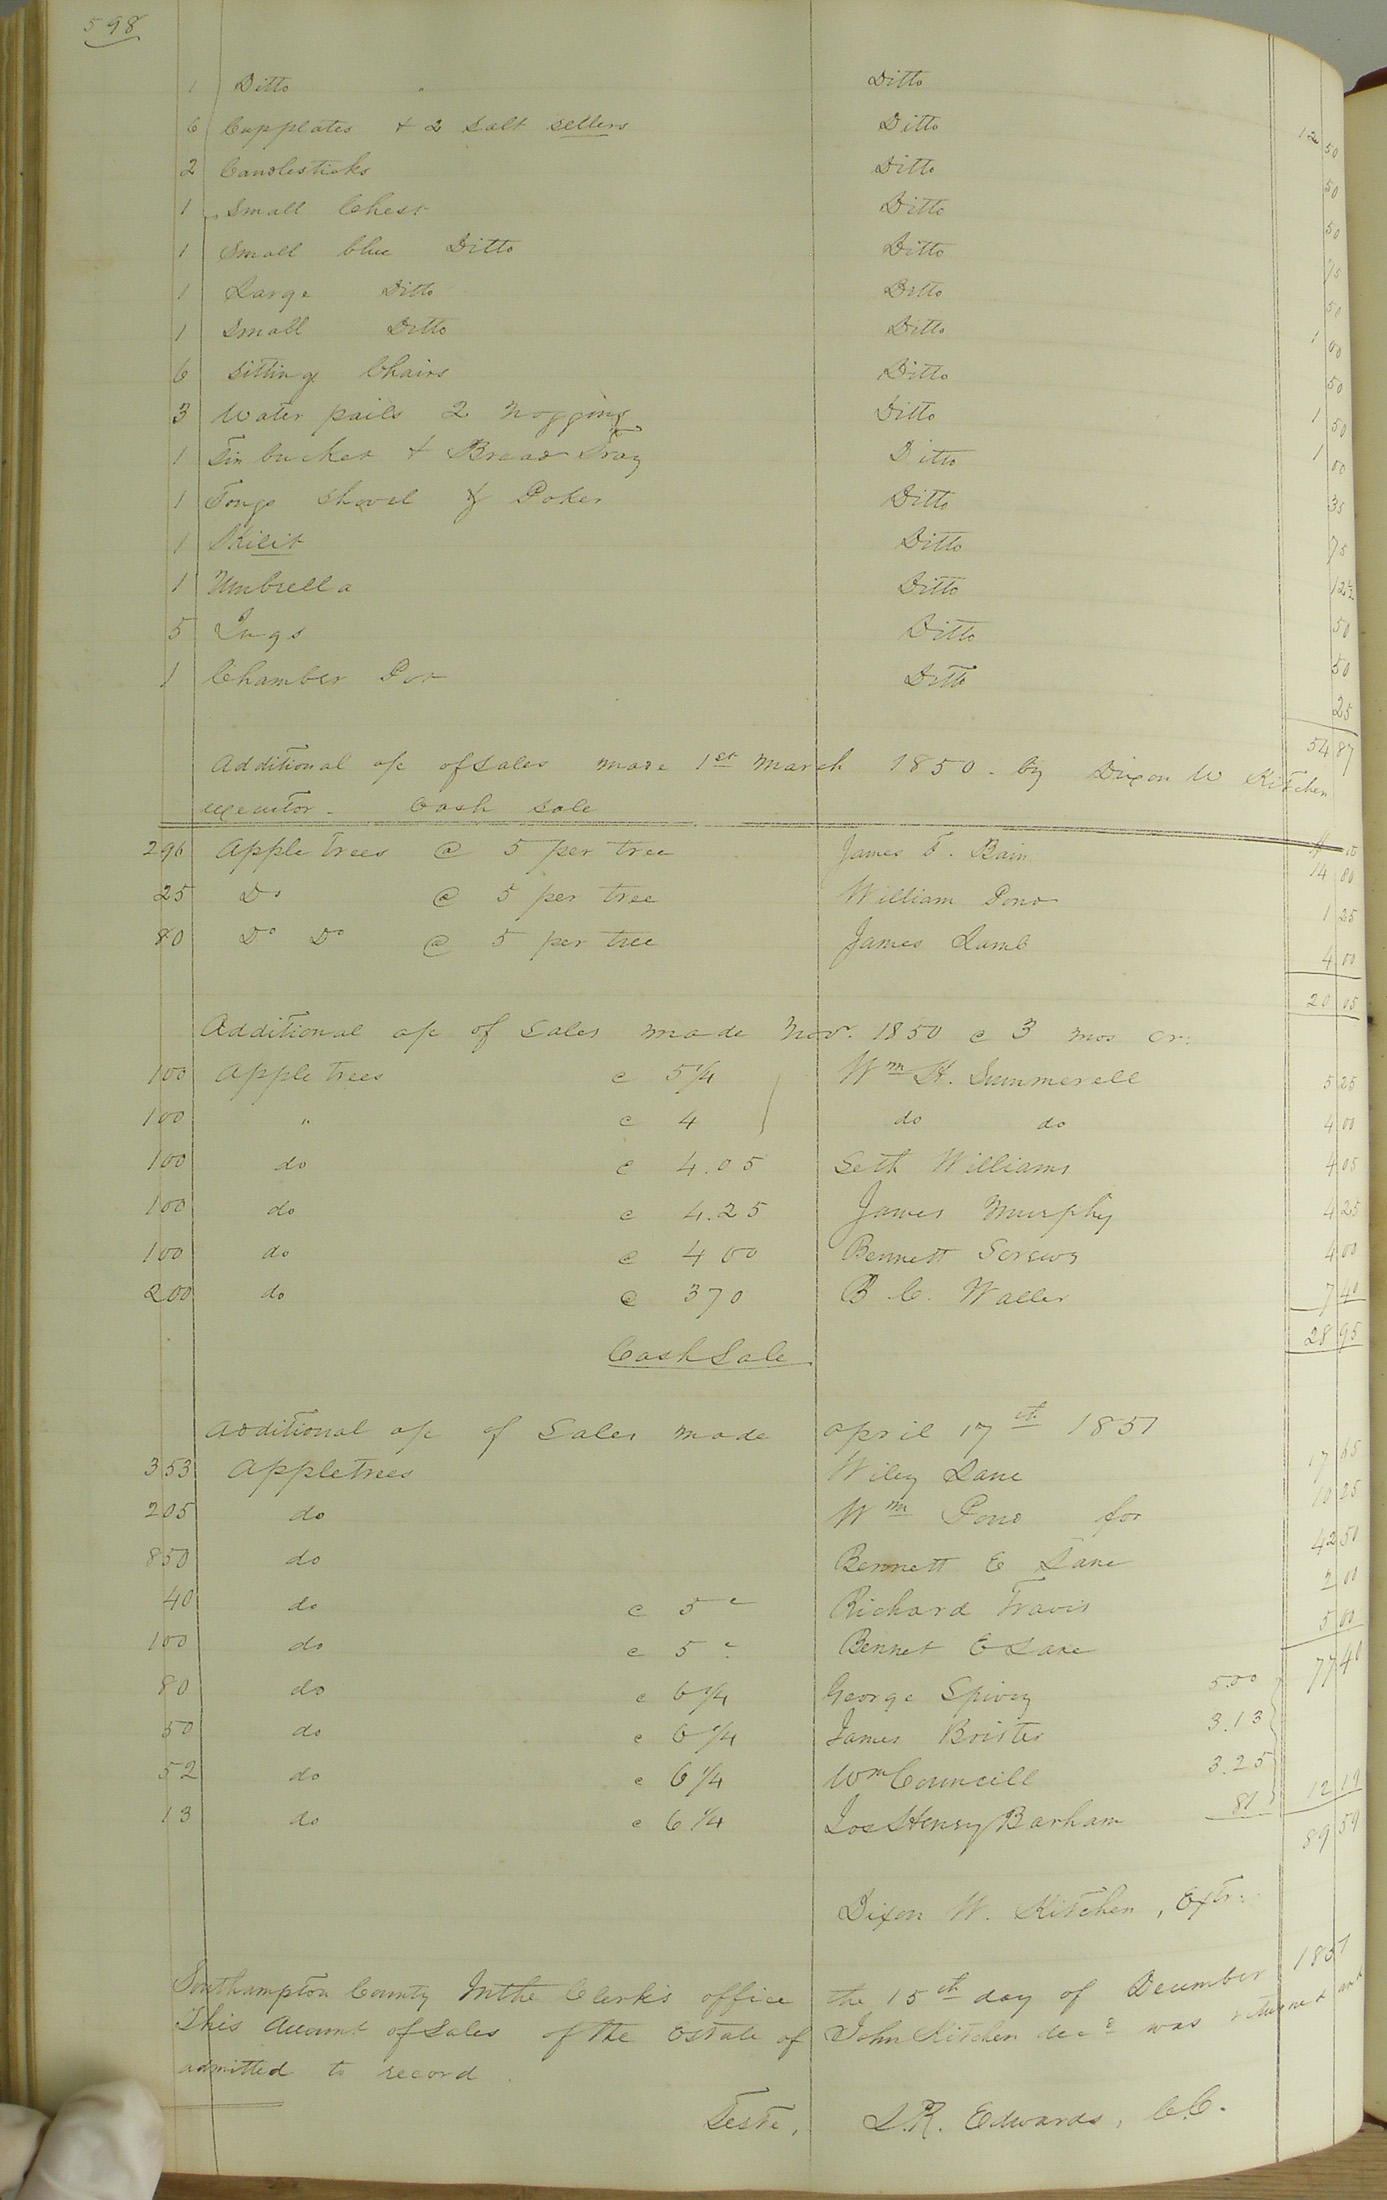 598
1 Ditto Ditto
6 Cupplates + 2 Salt Sellers Ditto 12 50
2 Candlesticks Ditto 50
1 Small Chest Ditto 50
1 Small blue Ditto Ditto 75
1 Large Ditto Ditto 50
1 Small Ditto Ditto 1 00
6 Sitting Chairs Ditto 50
3 Water pails 2 Noggins Ditto 1 50
1 Tin bucket + Bread Tray Ditto 1 00
1 Tongs Shovel & Poker Ditto 35
1 Skilit Ditto 75
1 Umbrella Ditto 12½
5 Jugs Ditto 50
1 Chamber Pot Ditto 50
25
54 87
Additional a/c of Sales made 1st March 1850. by Dixon W Kitchen
executor. Cash Sale
296 Apple Trees @ 5 per tree James T. Bain 14 80
25 Do @ 5 per tree William Pond 1 25
80 Do Do @ 5 per tree James Lamb 4 00
20 05
Additional a/c of Sales made Nov. 1850 @ 3 mos cr:
100 Apple trees @ 5¼ Wm H. Summerell 5 25
100 " @ 4 do do 4 00
100 do @ 4.05 Seth Williams 4 05
100 do @ 4.25 James Murphy 4 25
100 do @ 4 00 Bennett Screws 4 00
200 do @ 370 B C. Waller 7 40
28 95
Cash Sale
Additional a/c of Sales made April 17th 1851
353 Appletrees Wiley Lane 17 65
205 do Wm Pond for 10 25
850 do Bennett E Lane 42 50
40 do @ 5c Richard Travis 2 00
100 do @ 5c Bennet E Lane 5 00
77 40
80 do @ 6¼ George Spivey 5.00
50 do @ 6¼ James Brister 3.13
52 do @ 6¼ Wm Councill 3.25
13 do @ 6¼ Jos Henry Barham 81 12 19
89 59
Dixon W. Kitchen, Extr.
Southampton County In the Clerk's office the 15th day of December 1851
This Account of Sales of the Estate of John Kitchen decd was returned and
admitted to record.
Teste, L.R. Edwards, C.C.